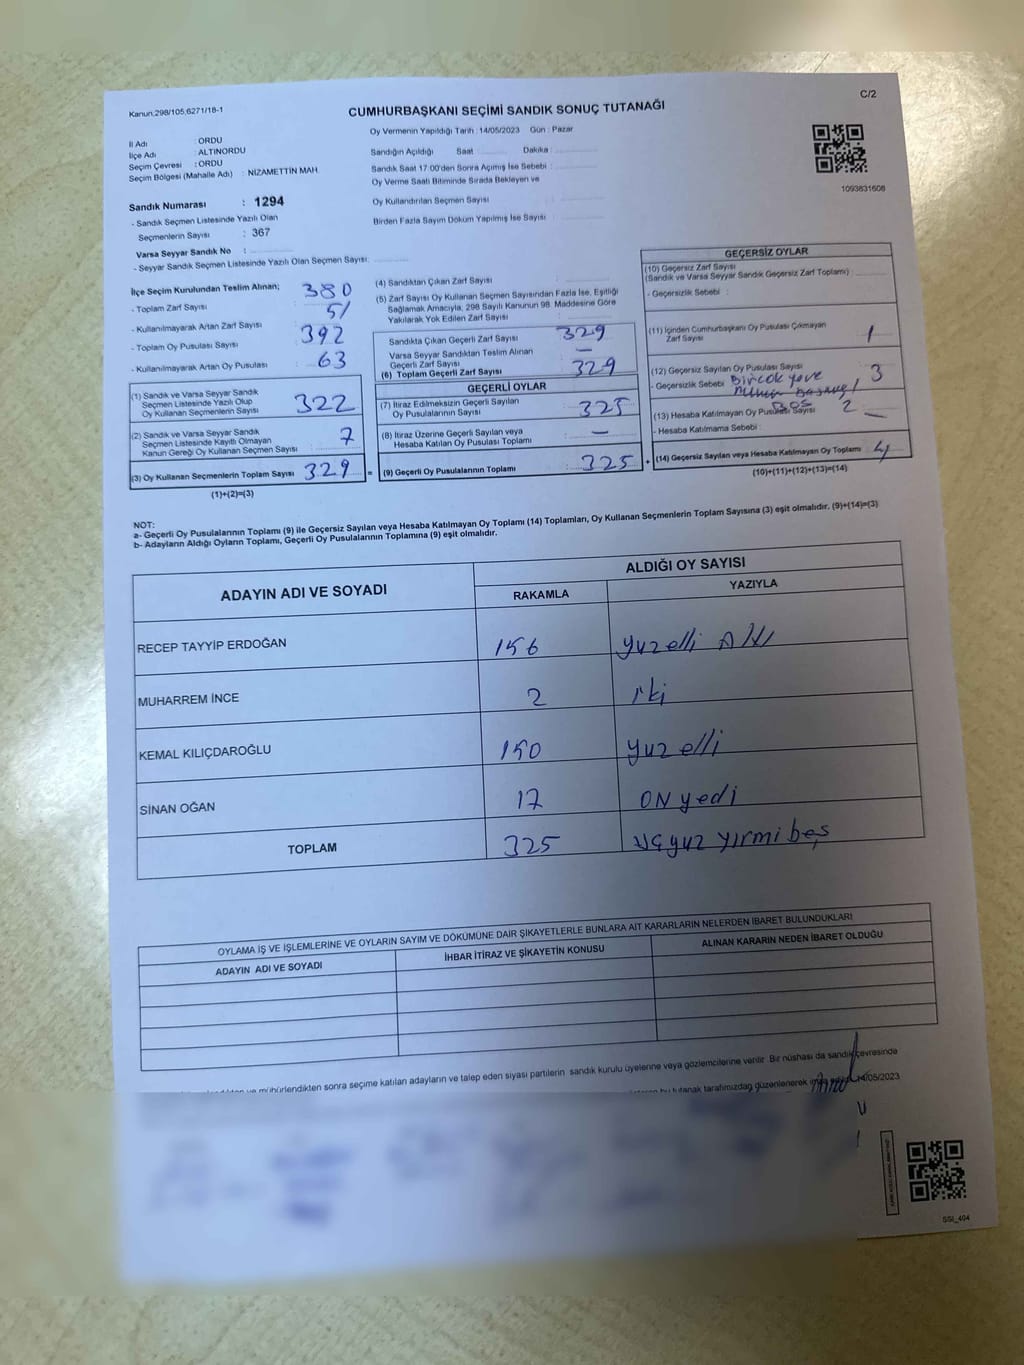 Kanun.298/105,6271/18-1
C/2
CUMHURBAŞKANI SEÇİMİ SANDIK SONUÇ TUTANAĞI
İl Adı : ORDU
İlçe Adı : ALTINORDU
Seçim Çevresi : ORDU
Seçim Bölgesi (Mahalle Adı) : NİZAMETTİN MAH.
Sandık Numarası : 1294
- Sandık Seçmen Listesinde Yazılı Olan
Seçmenlerin Sayısı : 367
Varsa Seyyar Sandık No :
- Seyyar Sandık Seçmen Listesinde Yazılı Olan Seçmen Sayısı:
Oy Vermenin Yapıldığı Tarih : 14/05/2023 Gün : Pazar
Sandığın Açıldığı Saat Dakika :
Sandık Saat 17:00'den Sonra Açımış İse Sebebi :
Oy Verme Saati Bitiminde Sırada Bekleyen ve
Oy Kullandırılan Seçmen Sayısı
Birden Fazla Sayım Döküm Yapılmış İse Sayısı :
1093831608
İlçe Seçim Kurulundan Teslim Alınan;
- Toplam Zarf Sayısı : 380
- Kullanılmayarak Artan Zarf Sayısı : 51
- Toplam Oy Pusulası Sayısı : 392
- Kullanılmayarak Artan Oy Pusulası : 63
(1) Sandık ve Varsa Seyyar Sandık
Seçmen Listesinde Yazılı Olup
Oy Kullanan Seçmenlerin Sayısı : 322
(2) Sandık ve Varsa Seyyar Sandık
Seçmen Listesinde Kayıtlı Olmayan
Kanun Gereği Oy Kullanan Seçmen Sayısı : 7
(3) Oy Kullanan Seçmenlerin Toplam Sayısı 329 =
(1)+(2)=(3)
(4) Sandıktan Çıkan Zarf Sayısı :
(5) Zarf Sayısı Oy Kullanan Seçmen Sayısından Fazla İse, Eşitliği
Sağlamak Amacıyla, 298 Sayılı Kanunun 98. Maddesine Göre
Yakılarak Yok Edilen Zarf Sayısı :
Sandıkta Çıkan Geçerli Zarf Sayısı : 329
Varsa Seyyar Sandıktan Teslim Alınan
Geçerli Zarf Sayısı : —
(6) Toplam Geçerli Zarf Sayısı : 329
GEÇERLİ OYLAR
(7) İtiraz Edilmeksizin Geçerli Sayılan
Oy Pusulalarının Sayısı : 325
(8) İtiraz Üzerine Geçerli Sayılan veya
Hesaba Katılan Oy Pusulası Toplamı : —
(9) Geçerli Oy Pusulalarının Toplamı : 325 +
GEÇERSİZ OYLAR
(10) Geçersiz Zarf Sayısı
(Sandık ve Varsa Seyyar Sandık Geçersiz Zarf Toplamı) :
- Geçersizlik Sebebi :
(11) İçinden Cumhurbaşkanı Oy Pusulası Çıkmayan
Zarf Sayısı : 1
(12) Geçersiz Sayılan Oy Pusulası Sayısı : 3
- Geçersizlik Sebebi : Bircok yere
BOŞ 2
(13) Hesaba Katılmayan Oy Pusulası Sayısı : —
- Hesaba Katılmama Sebebi :
(14) Geçersiz Sayılan veya Hesaba Katılmayan Oy Toplamı : 4
(10)+(11)+(12)+(13)=(14)
NOT:
a- Geçerli Oy Pusulalarının Toplamı (9) ile Geçersiz Sayılan veya Hesaba Katılmayan Oy Toplamı (14) Toplamları, Oy Kullanan Seçmenlerin Toplam Sayısına (3) eşit olmalıdır. (9)+(14)=(3)
b- Adayların Aldığı Oyların Toplamı, Geçerli Oy Pusulalarının Toplamına (9) eşit olmalıdır.
ADAYIN ADI VE SOYADI
ALDIĞI OY SAYISI
RAKAMLA YAZIYLA
RECEP TAYYİP ERDOĞAN 156 yuzelli Altı
MUHARREM İNCE 2 iki
KEMAL KILIÇDAROĞLU 150 yuzelli
SİNAN OĞAN 17 ONyedi
TOPLAM 325 uçyuz yırmi beş
OYLAMA İŞ VE İŞLEMLERİNE VE OYLARIN SAYIM VE DÖKÜMÜNE DAİR ŞİKAYETLERLE BUNLARA AİT KARARLARIN NELERDEN İBARET BULUNDUKLARI
ADAYIN ADI VE SOYADI İHBAR İTİRAZ VE ŞİKAYETİN KONUSU ALINAN KARARIN NEDEN İBARET OLDUĞU
ve mühürlendikten sonra seçime katılan adayların ve talep eden siyasi partilerin sandık kurulu üyelerine veya gözlemcilerine verilir. Bir nüshası da sandık çevresinde
bu tutanak tarafımızdan düzenlenerek 14/05/2023
SSI_404